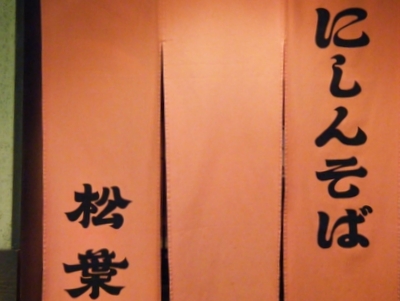 にしんそば
松葉